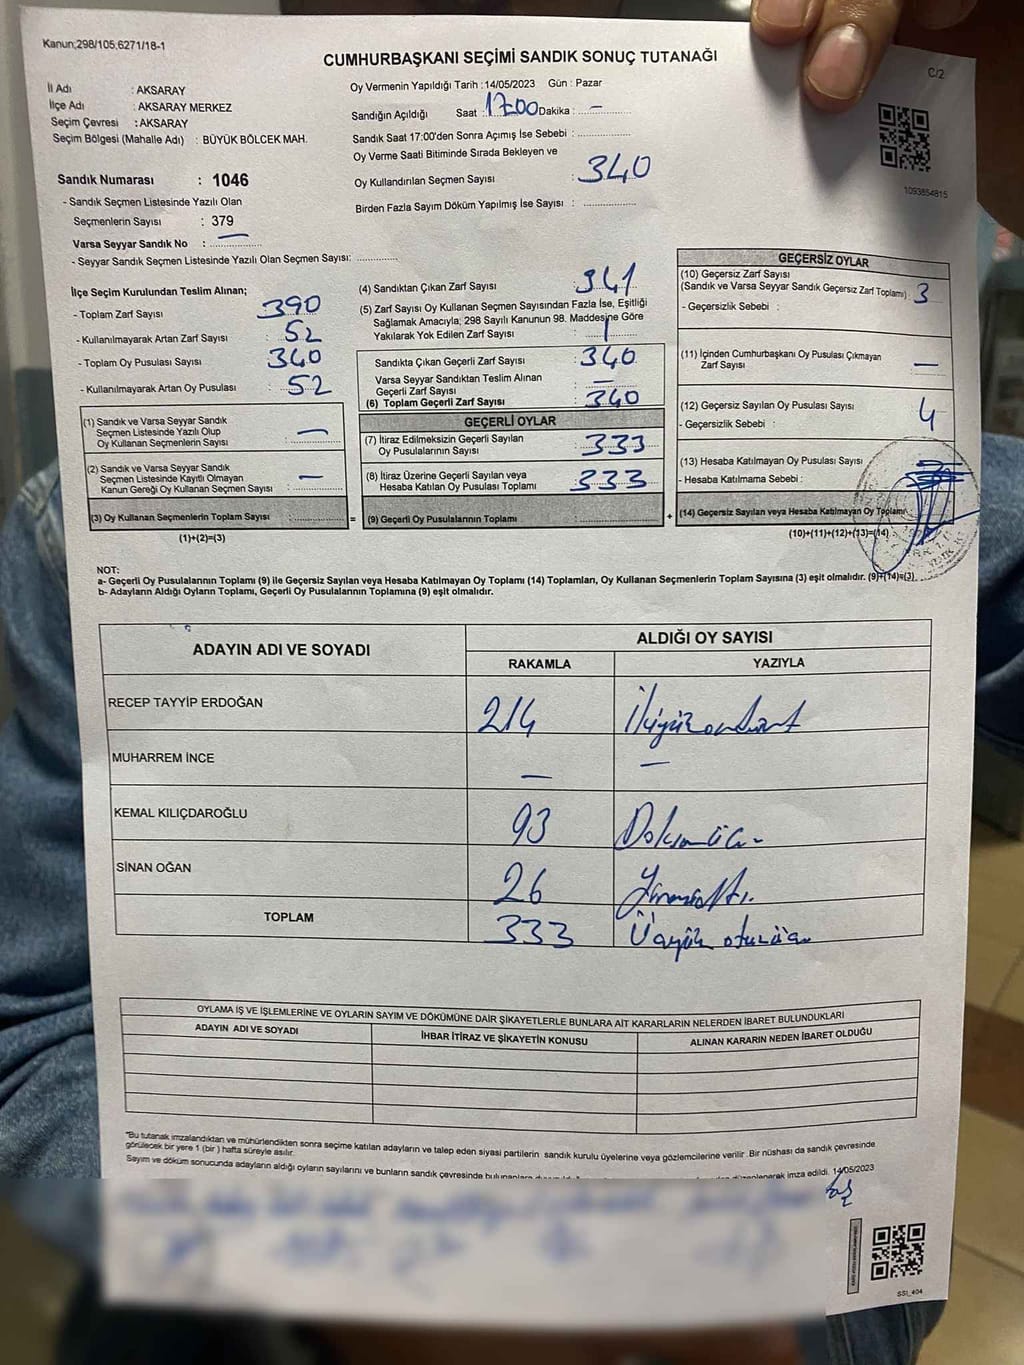 Kanun;298/105,6271/18-1
CUMHURBAŞKANI SEÇİMİ SANDIK SONUÇ TUTANAĞI
C/2
İl Adı : AKSARAY
İlçe Adı : AKSARAY MERKEZ
Seçim Çevresi : AKSARAY
Seçim Bölgesi (Mahalle Adı) : BÜYÜK BÖLCEK MAH.
Sandık Numarası : 1046
- Sandık Seçmen Listesinde Yazılı Olan
Seçmenlerin Sayısı : 379
Varsa Seyyar Sandık No : —
- Seyyar Sandık Seçmen Listesinde Yazılı Olan Seçmen Sayısı:
Oy Vermenin Yapıldığı Tarih :14/05/2023 Gün : Pazar
Sandığın Açıldığı Saat : 17:00 Dakika : —
Sandık Saat 17:00'den Sonra Açımış İse Sebebi :
Oy Verme Saati Bitiminde Sırada Bekleyen ve
Oy Kullandırılan Seçmen Sayısı : 340
Birden Fazla Sayım Döküm Yapılmış İse Sayısı :
1093854815
İlçe Seçim Kurulundan Teslim Alınan;
- Toplam Zarf Sayısı : 390
- Kullanılmayarak Artan Zarf Sayısı : 52
- Toplam Oy Pusulası Sayısı : 340
- Kullanılmayarak Artan Oy Pusulası : 52
(1) Sandık ve Varsa Seyyar Sandık
Seçmen Listesinde Yazılı Olup
Oy Kullanan Seçmenlerin Sayısı : —
(2) Sandık ve Varsa Seyyar Sandık
Seçmen Listesinde Kayıtlı Olmayan
Kanun Gereği Oy Kullanan Seçmen Sayısı : —
(3) Oy Kullanan Seçmenlerin Toplam Sayısı :
(1)+(2)=(3)
=
(4) Sandıktan Çıkan Zarf Sayısı : 341
(5) Zarf Sayısı Oy Kullanan Seçmen Sayısından Fazla İse, Eşitliği
Sağlamak Amacıyla; 298 Sayılı Kanunun 98. Maddesine Göre
Yakılarak Yok Edilen Zarf Sayısı : 1
Sandıkta Çıkan Geçerli Zarf Sayısı : 340
Varsa Seyyar Sandıktan Teslim Alınan
Geçerli Zarf Sayısı : —
(6) Toplam Geçerli Zarf Sayısı : 340
GEÇERLİ OYLAR
(7) İtiraz Edilmeksizin Geçerli Sayılan
Oy Pusulalarının Sayısı : 333
(8) İtiraz Üzerine Geçerli Sayılan veya
Hesaba Katılan Oy Pusulası Toplamı : 333
(9) Geçerli Oy Pusulalarının Toplamı :
+
GEÇERSİZ OYLAR
(10) Geçersiz Zarf Sayısı
(Sandık ve Varsa Seyyar Sandık Geçersiz Zarf Toplamı) : 3
- Geçersizlik Sebebi :
(11) İçinden Cumhurbaşkanı Oy Pusulası Çıkmayan
Zarf Sayısı : —
(12) Geçersiz Sayılan Oy Pusulası Sayısı : 4
- Geçersizlik Sebebi :
(13) Hesaba Katılmayan Oy Pusulası Sayısı
- Hesaba Katılmama Sebebi :
(14) Geçersiz Sayılan veya Hesaba Katılmayan Oy Toplamı
(10)+(11)+(12)+(13)=(14)
NOT:
a- Geçerli Oy Pusulalarının Toplamı (9) ile Geçersiz Sayılan veya Hesaba Katılmayan Oy Toplamı (14) Toplamları, Oy Kullanan Seçmenlerin Toplam Sayısına (3) eşit olmalıdır. (9)+(14)=(3)
b- Adayların Aldığı Oyların Toplamı, Geçerli Oy Pusulalarının Toplamına (9) eşit olmalıdır.
ADAYIN ADI VE SOYADI
ALDIĞI OY SAYISI
RAKAMLA YAZIYLA
RECEP TAYYİP ERDOĞAN 214 İkiyüzondört
MUHARREM İNCE — —
KEMAL KILIÇDAROĞLU 93 Doksanüç
SİNAN OĞAN 26 Yirmialtı.
TOPLAM 333 Üçyüz otuzüç
OYLAMA İŞ VE İŞLEMLERİNE VE OYLARIN SAYIM VE DÖKÜMÜNE DAİR ŞİKAYETLERLE BUNLARA AİT KARARLARIN NELERDEN İBARET BULUNDUKLARI
ADAYIN ADI VE SOYADI İHBAR İTİRAZ VE ŞİKAYETİN KONUSU ALINAN KARARIN NEDEN İBARET OLDUĞU
*Bu tutanak imzalandıktan ve mühürlendikten sonra seçime katılan adayların ve talep eden siyasi partilerin sandık kurulu üyelerine veya gözlemcilerine verilir .Bir nüshası da sandık çevresinde
görülecek bir yere 1 (bir ) hafta süreyle asılır.
Sayım ve döküm sonucunda adayların aldığı oyların sayılarını ve bunların sandık çevresinde bulunanlara düzenlenerek imza edildi. 14/05/2023
SSİ_404